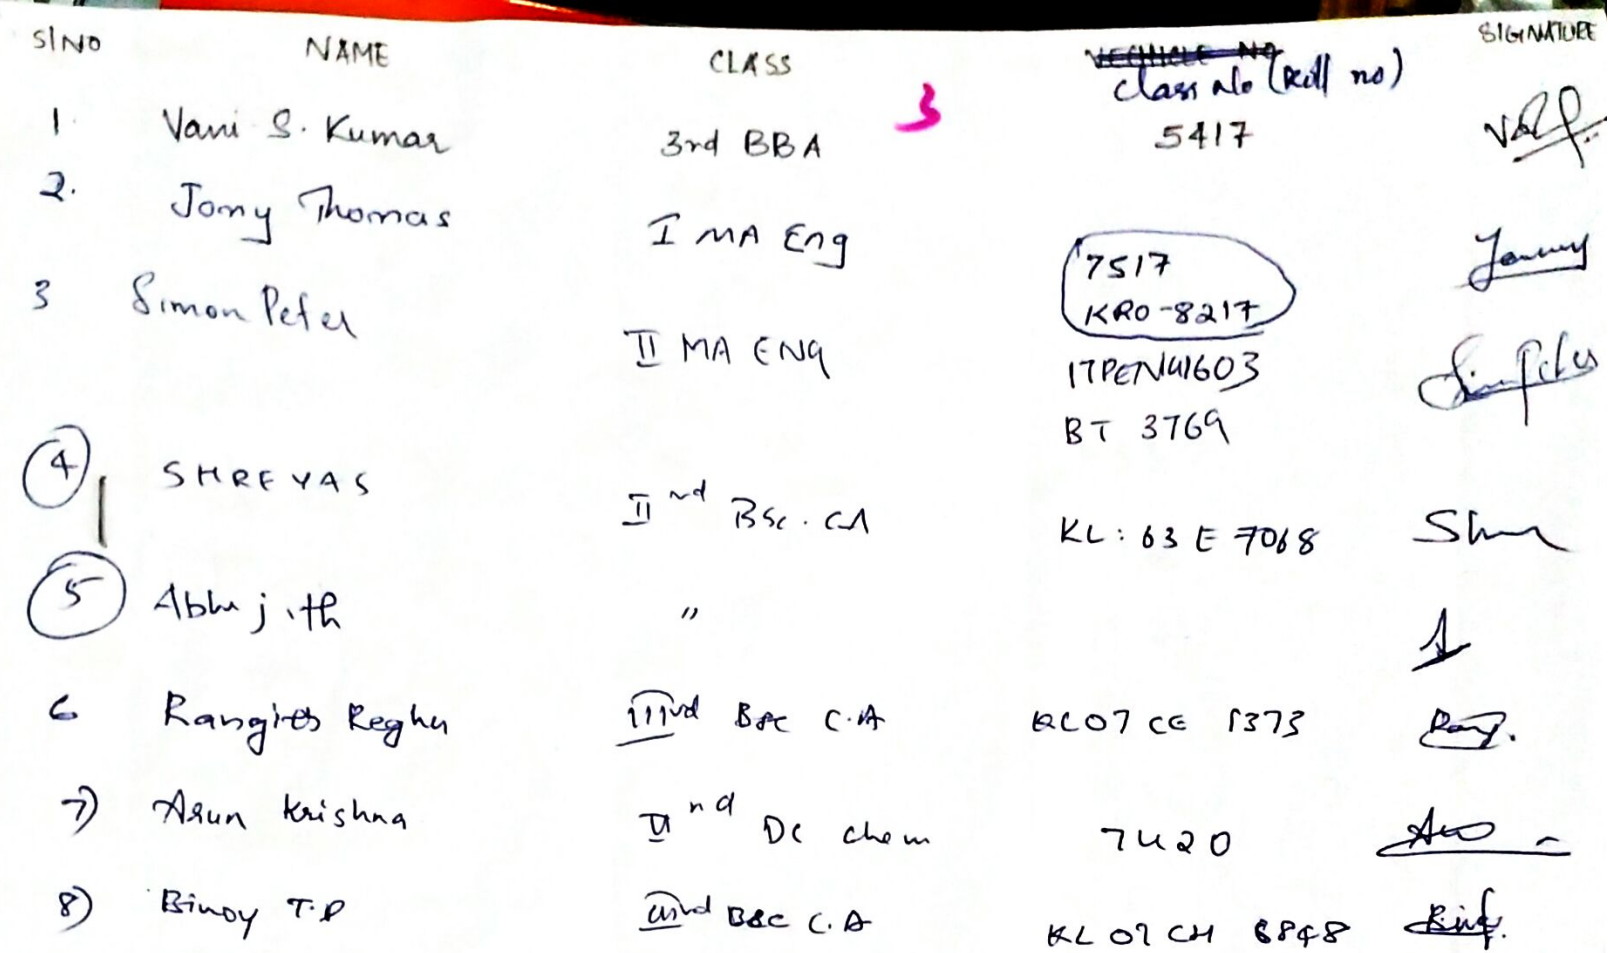 SI NO NAME CLASS VECHICLE NO SIGNATURE
Class No (Roll no)
3
1 Vani S. Kumar 3rd BBA 5417
2. Jomy Thomas I MA Eng 7517
KRO-8217
3 Simon Peter II MA ENG 17PENG1603
BT 3769
4 SHREYAS II nd BSc. CA KL: 63 E 7068
5 Abhijith "
6 Reghu IIIrd BSc C.A KL07 CE 1373
7) Arun Krishna II nd DC chem 7420
8) Binoy T.P IIIrd BSc C.A KL 07 CH